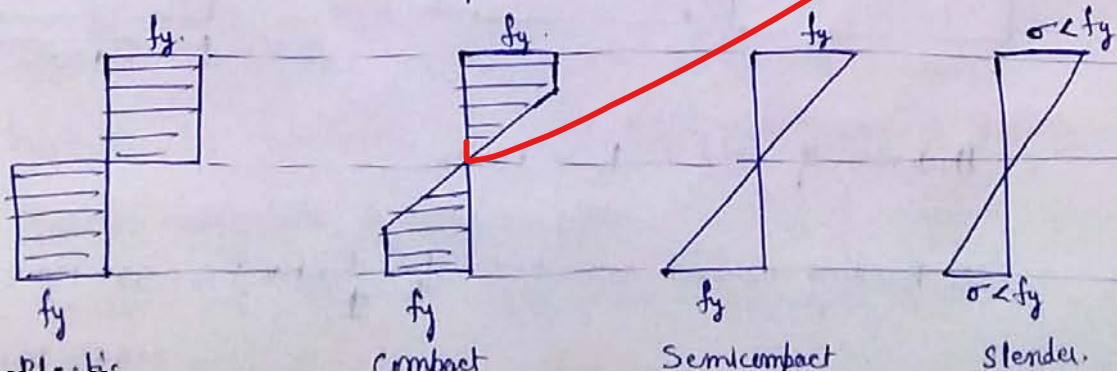 fy. fy. fy σ < fy
fy fy fy σ < fy
Plastic Compact Semicompact Slender.